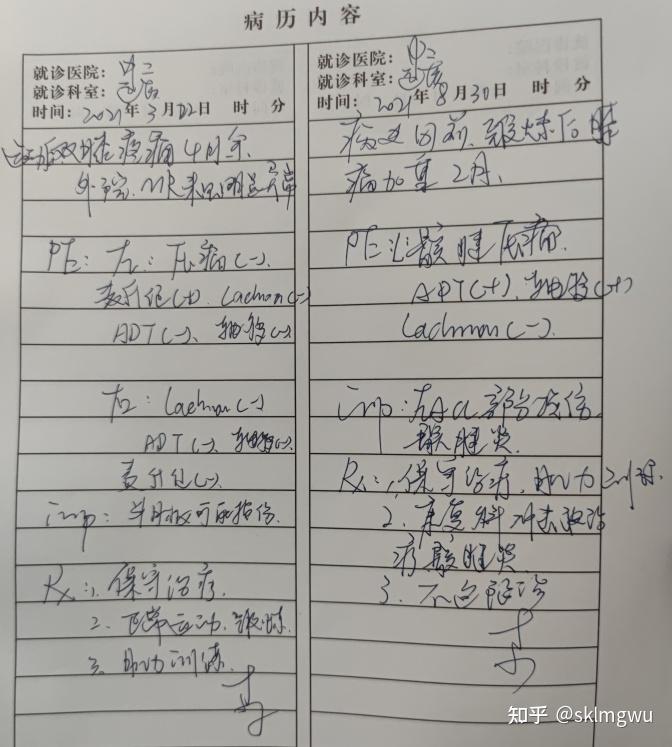 病历内容
就诊医院:
就诊科室:
时间: 2021年3月02日 时 分
双膝疼痛4月余.
外院.MR未见明显异常
PE: 左: 压痛(-).
麦氏征(+). Lachman(-)
ADT(-). 轴移(-)
右: Lachman(-)
ADT(-). 轴移(-).
麦氏征(-).
imp: 半月板可能损伤.
Rx: 1. 保守治疗.
2. 正常运动.锻炼.
3. 肌力训练.
就诊医院:
就诊科室:
时间: 2021年8月30日 时 分
病史同前.锻炼后膝
痛加重2月.
PE: 髌腱压痛.
ADT(+). 轴移(+)
Lachman(-).
imp: 左ACL部分损伤.
髌腱炎.
Rx: 1. 保守治疗.肌力训练.
2. 康复科冲击波治
疗髌腱炎
3. 不适随诊
知乎 @sklmgwu